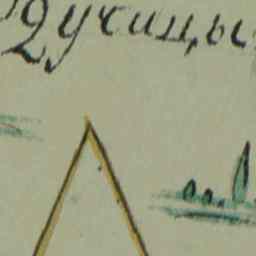 Дучицы